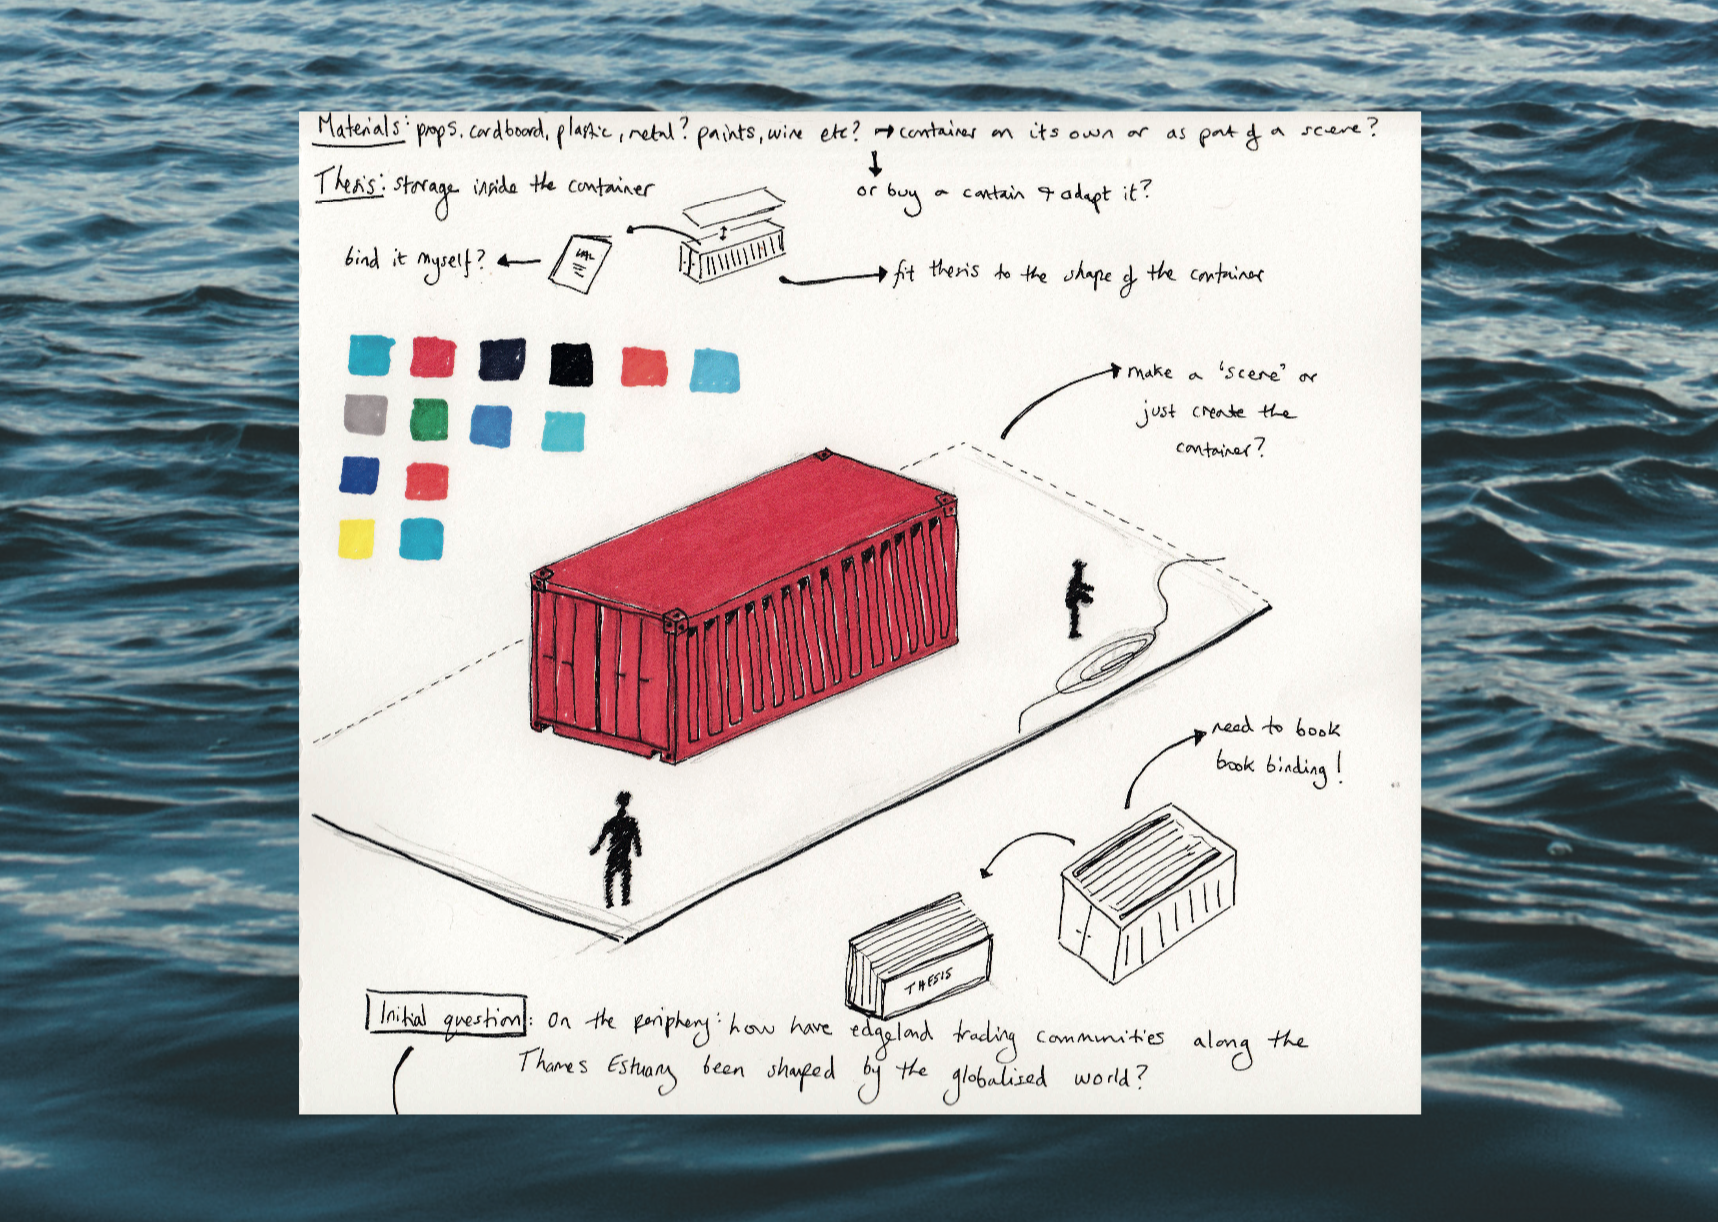 Materials: props, cardboard, plastic, metal? paints, wire etc? → container on its own or as part of a scene?
Thesis: storage inside the container
or buy a contain + adapt it?
bind it myself?
fit thesis to the shape of the container
make a 'scene' or
just create the
container?
need to book
book binding!
THESIS
Initial question: On the periphery: how have edgeland trading communities along the
Thames Estuary been shaped by the globalised world?